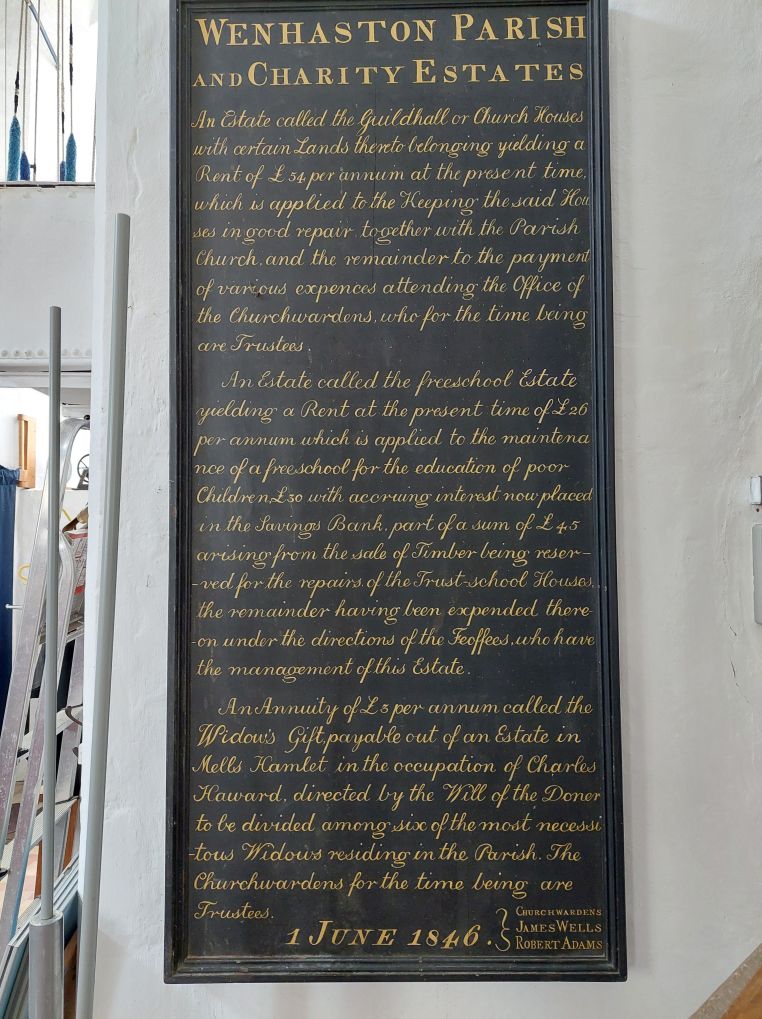 WENHASTON PARISH
AND CHARITY ESTATES
An Estate called the Guildhall or Church Houses
with certain Lands thereto belonging yielding a
Rent of £54, per annum at the present time,
which is applied to the Keeping the said Hou
ses in good repair together with the Parish
Church, and the remainder to the payment
of various expences attending the Office of
the Churchwardens, who for the time being
are Trustees.
An Estate called the freeschool Estate
yielding a Rent at the present time of £26
per annum which is applied to the maintena
nce of a freeschool for the education of poor
Children, £30 with accruing interest now placed
in the Savings Bank, part of a sum of £45
arising from the sale of Timber being reser-
-ved for the repairs of the Trust-school Houses,
the remainder having been expended there-
-on under the directions of the Feoffees, who have
the management of this Estate.
An Annuity of £3 per annum called the
Widow's Gift, payable out of an Estate in
Mells Hamlet in the occupation of Charles
Haward, directed by the Will of the Doner
to be divided among six of the most necessi
-tous Widows residing in the Parish. The
Churchwardens for the time being are
Trustees.
1 JUNE 1846.
CHURCHWARDENS
JAMES WELLS
ROBERT ADAMS